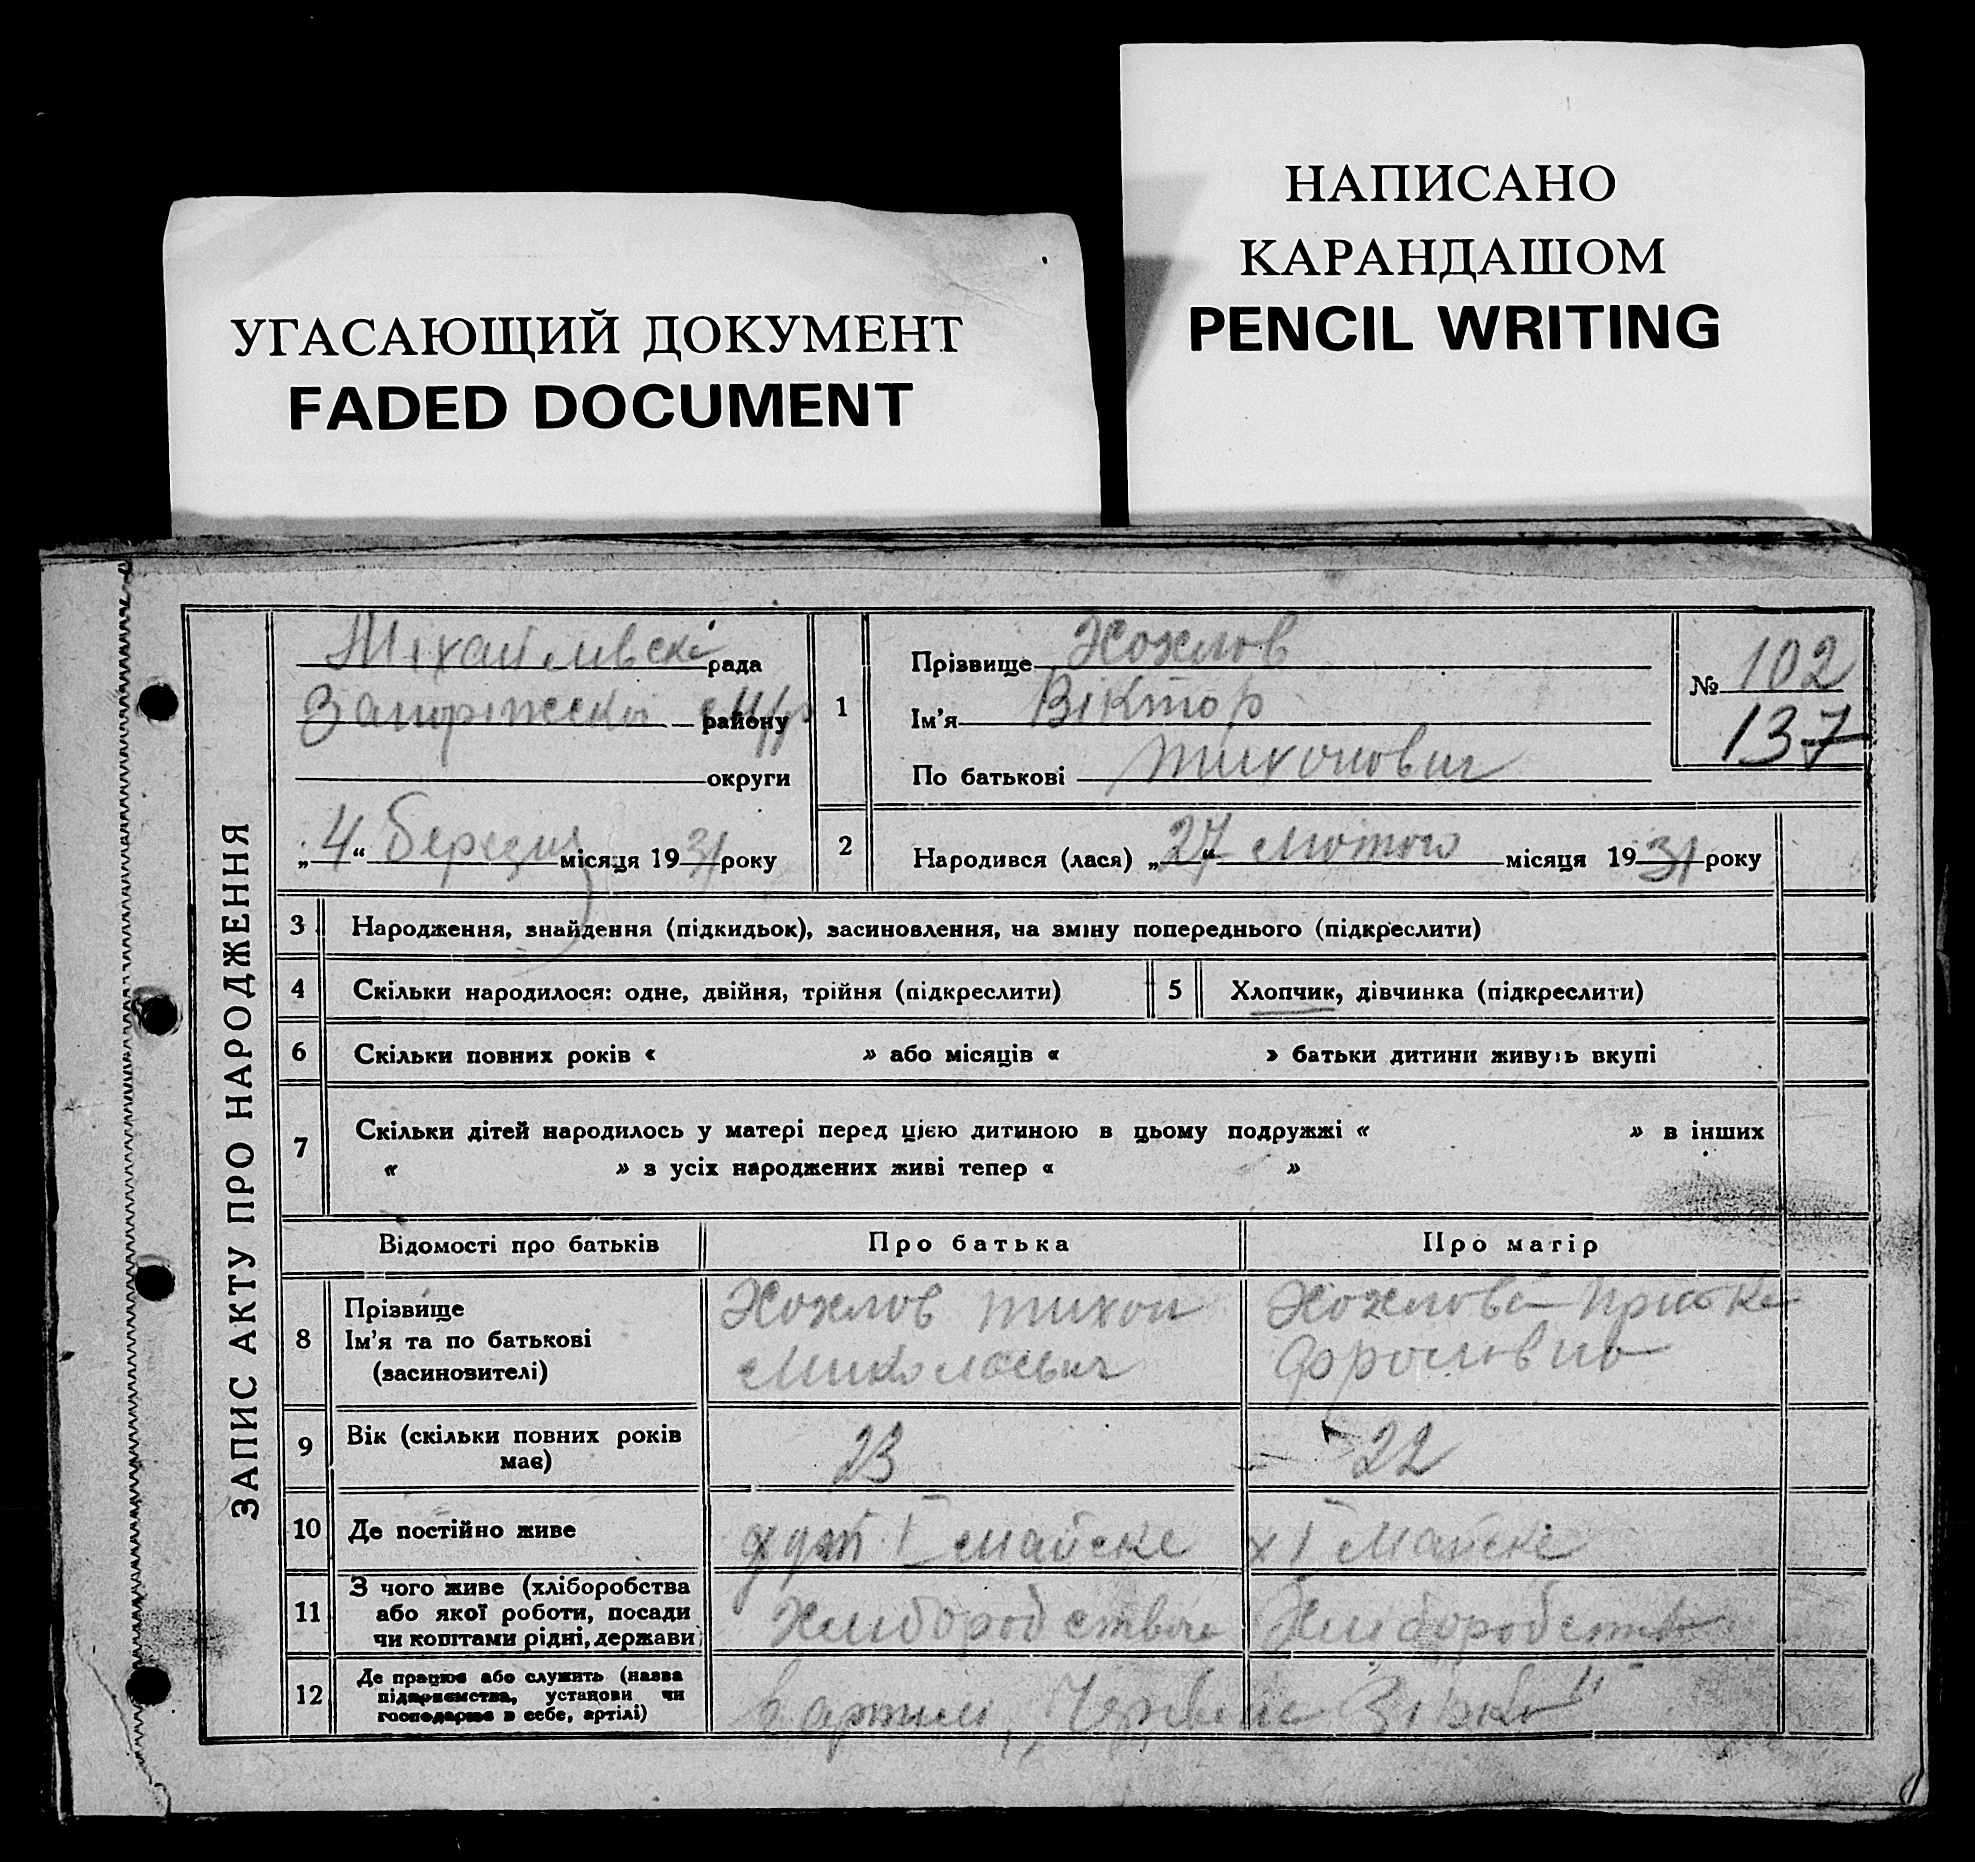 НАПИСАНО
КАРАНДАШОМ
PENCIL WRITING
УГАСАЮЩИЙ ДОКУМЕНТ
FADED DOCUMENT
ЗАПИС АКТУ ПРО НАРОДЖЕННЯ
рада
району
округи
„4“ Березня місяця 1931 року
1
Прізвище Хохлов
Ім'я Віктор
По батькові Тихонович
№ 102
137
2 Народився (лася) „27“ Лютого місяця 1931 року
3 Народження, знайдення (підкидьок), засиновлення, на зміну попереднього (підкреслити)
4 Скільки народилося: одне, двійня, трійня (підкреслити) 5 Хлопчик, дівчинка (підкреслити)
6 Скільки повних років « » або місяців « » батьки дитини живуть вкупі
7 Скільки дітей народилось у матері перед цією дитиною в цьому подружжі « » в інших
« » з усіх народжених живі тепер « »
Відомості про батьків Про батька Про матір
8 Прізвище
Ім'я та по батькові
(засиновителі)
Хохлов Тихон
Миколаевич
Хохлова
Фроловна
9 Вік (скільки повних років
має)
23 22
10 Де постійно живе хут. І Майске х І Майске
11 З чого живе (хліборобства
або якої роботи, посади
чи коштами рідні, держави)
Хлиборобство
12 Де працює або служить (назва
підприємства, установи чи
господарює в себе, артілі)
в артилі „Червона Зірка“